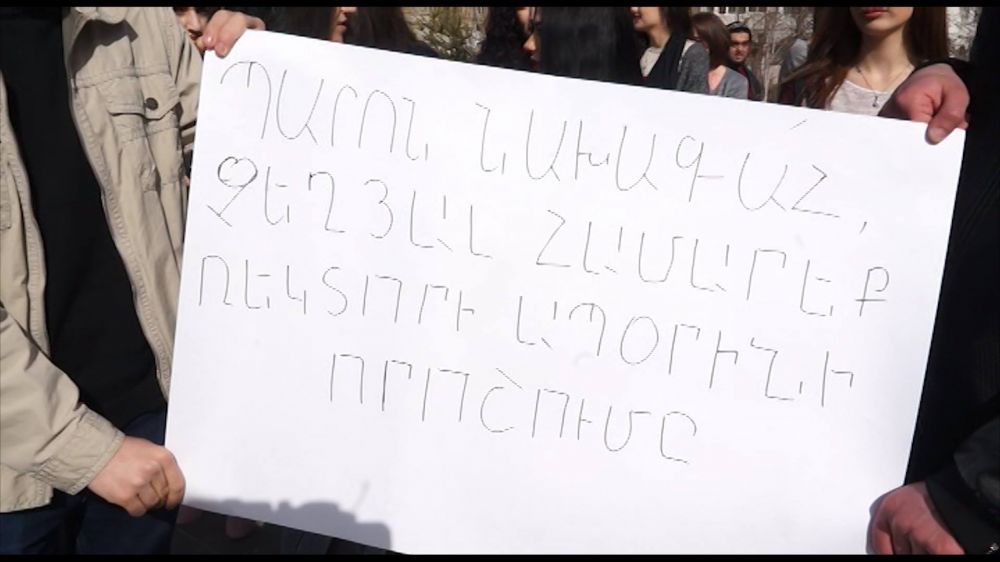 ՊԱՐՈՆ ՆԱԽԱԳԱՀ,
ՉԵՂՅԱԼ ՀԱՄԱՐԵՔ
ՌԵԿՏՈՐԻ ԱՊՕՐԻՆԻ
ՈՐՈՇՈՒՄԸ